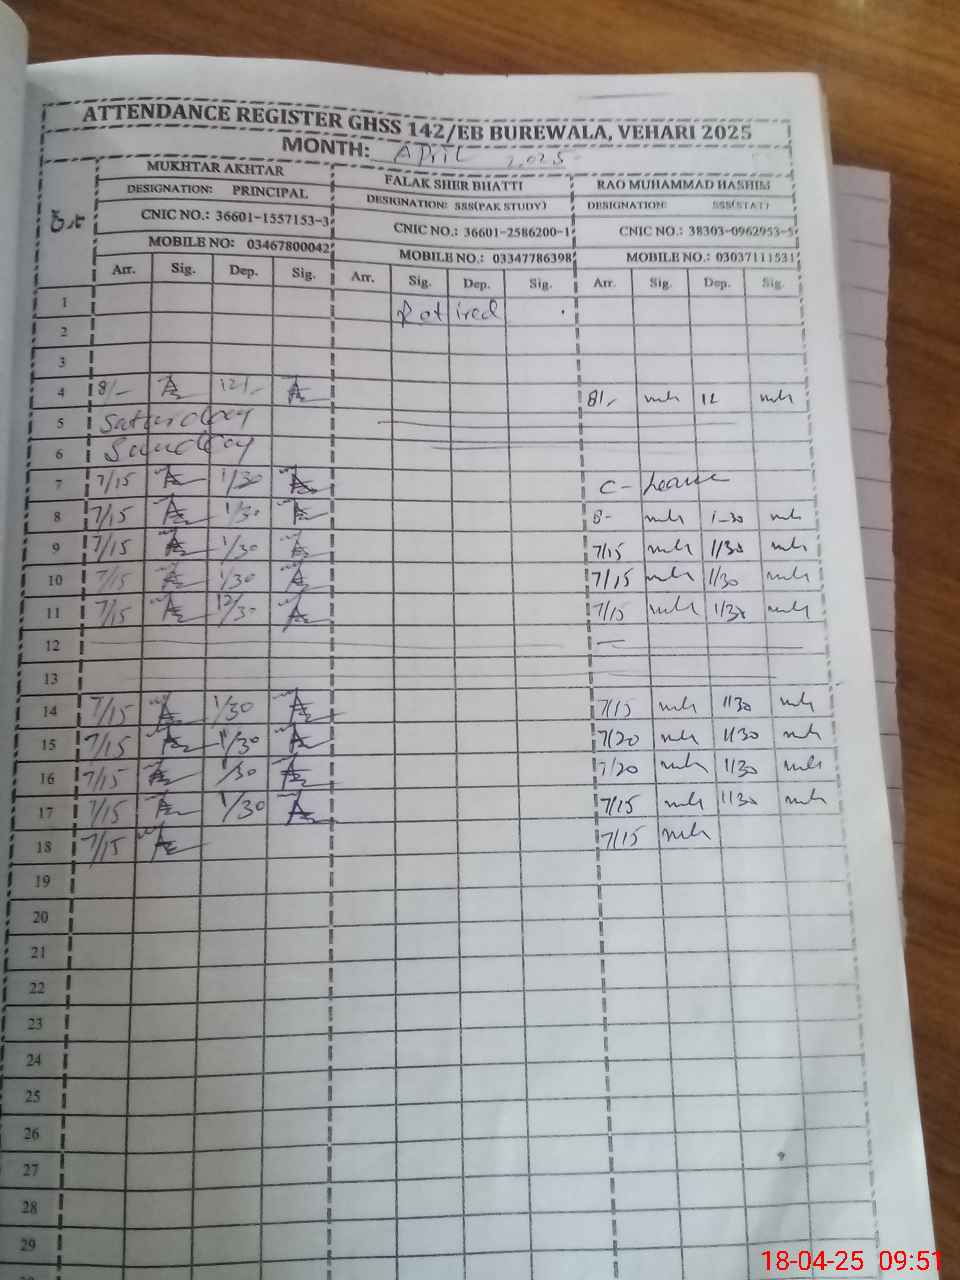 ATTENDANCE REGISTER GHSS 142/EB BUREWALA, VEHARI 2025
MONTH: April 2025
تاریخ MUKHTAR AKHTAR FALAK SHER BHATTI RAO MUHAMMAD HASHIM
DESIGNATION: PRINCIPAL DESIGNATION: SSS(PAK STUDY) DESIGNATION: SSS(STAT)
CNIC NO.: 36601-1557153-3 CNIC NO.: 36601-2586200-1 CNIC NO.: 38303-0962953-5
MOBILE NO: 03467800042 MOBILE NO.: 03347786398 MOBILE NO.: 03037111531
Arr. Sig. Dep. Sig. Arr. Sig. Dep. Sig. Arr. Sig. Dep. Sig.
1 Retired
2
3
4 8/- 12/- 8/- 12
5 Saturday
6 Sunday
7 7/15 1/30 C-Leave
8 7/15 1/30 8- 1-30
9 7/15 1/30 7/15 1/30
10 7/15 1/30 7/15 1/30
11 7/15 12/30 7/15 1/30
12
13
14 7/15 1/30 7/15 1/30
15 7/15 1/30 7/20 1/30
16 7/15 1/30 7/20 1/30
17 7/15 1/30 7/15 1/30
18 7/15 7/15
19
20
21
22
23
24
25
26
27
28
29
18-04-25 09:51